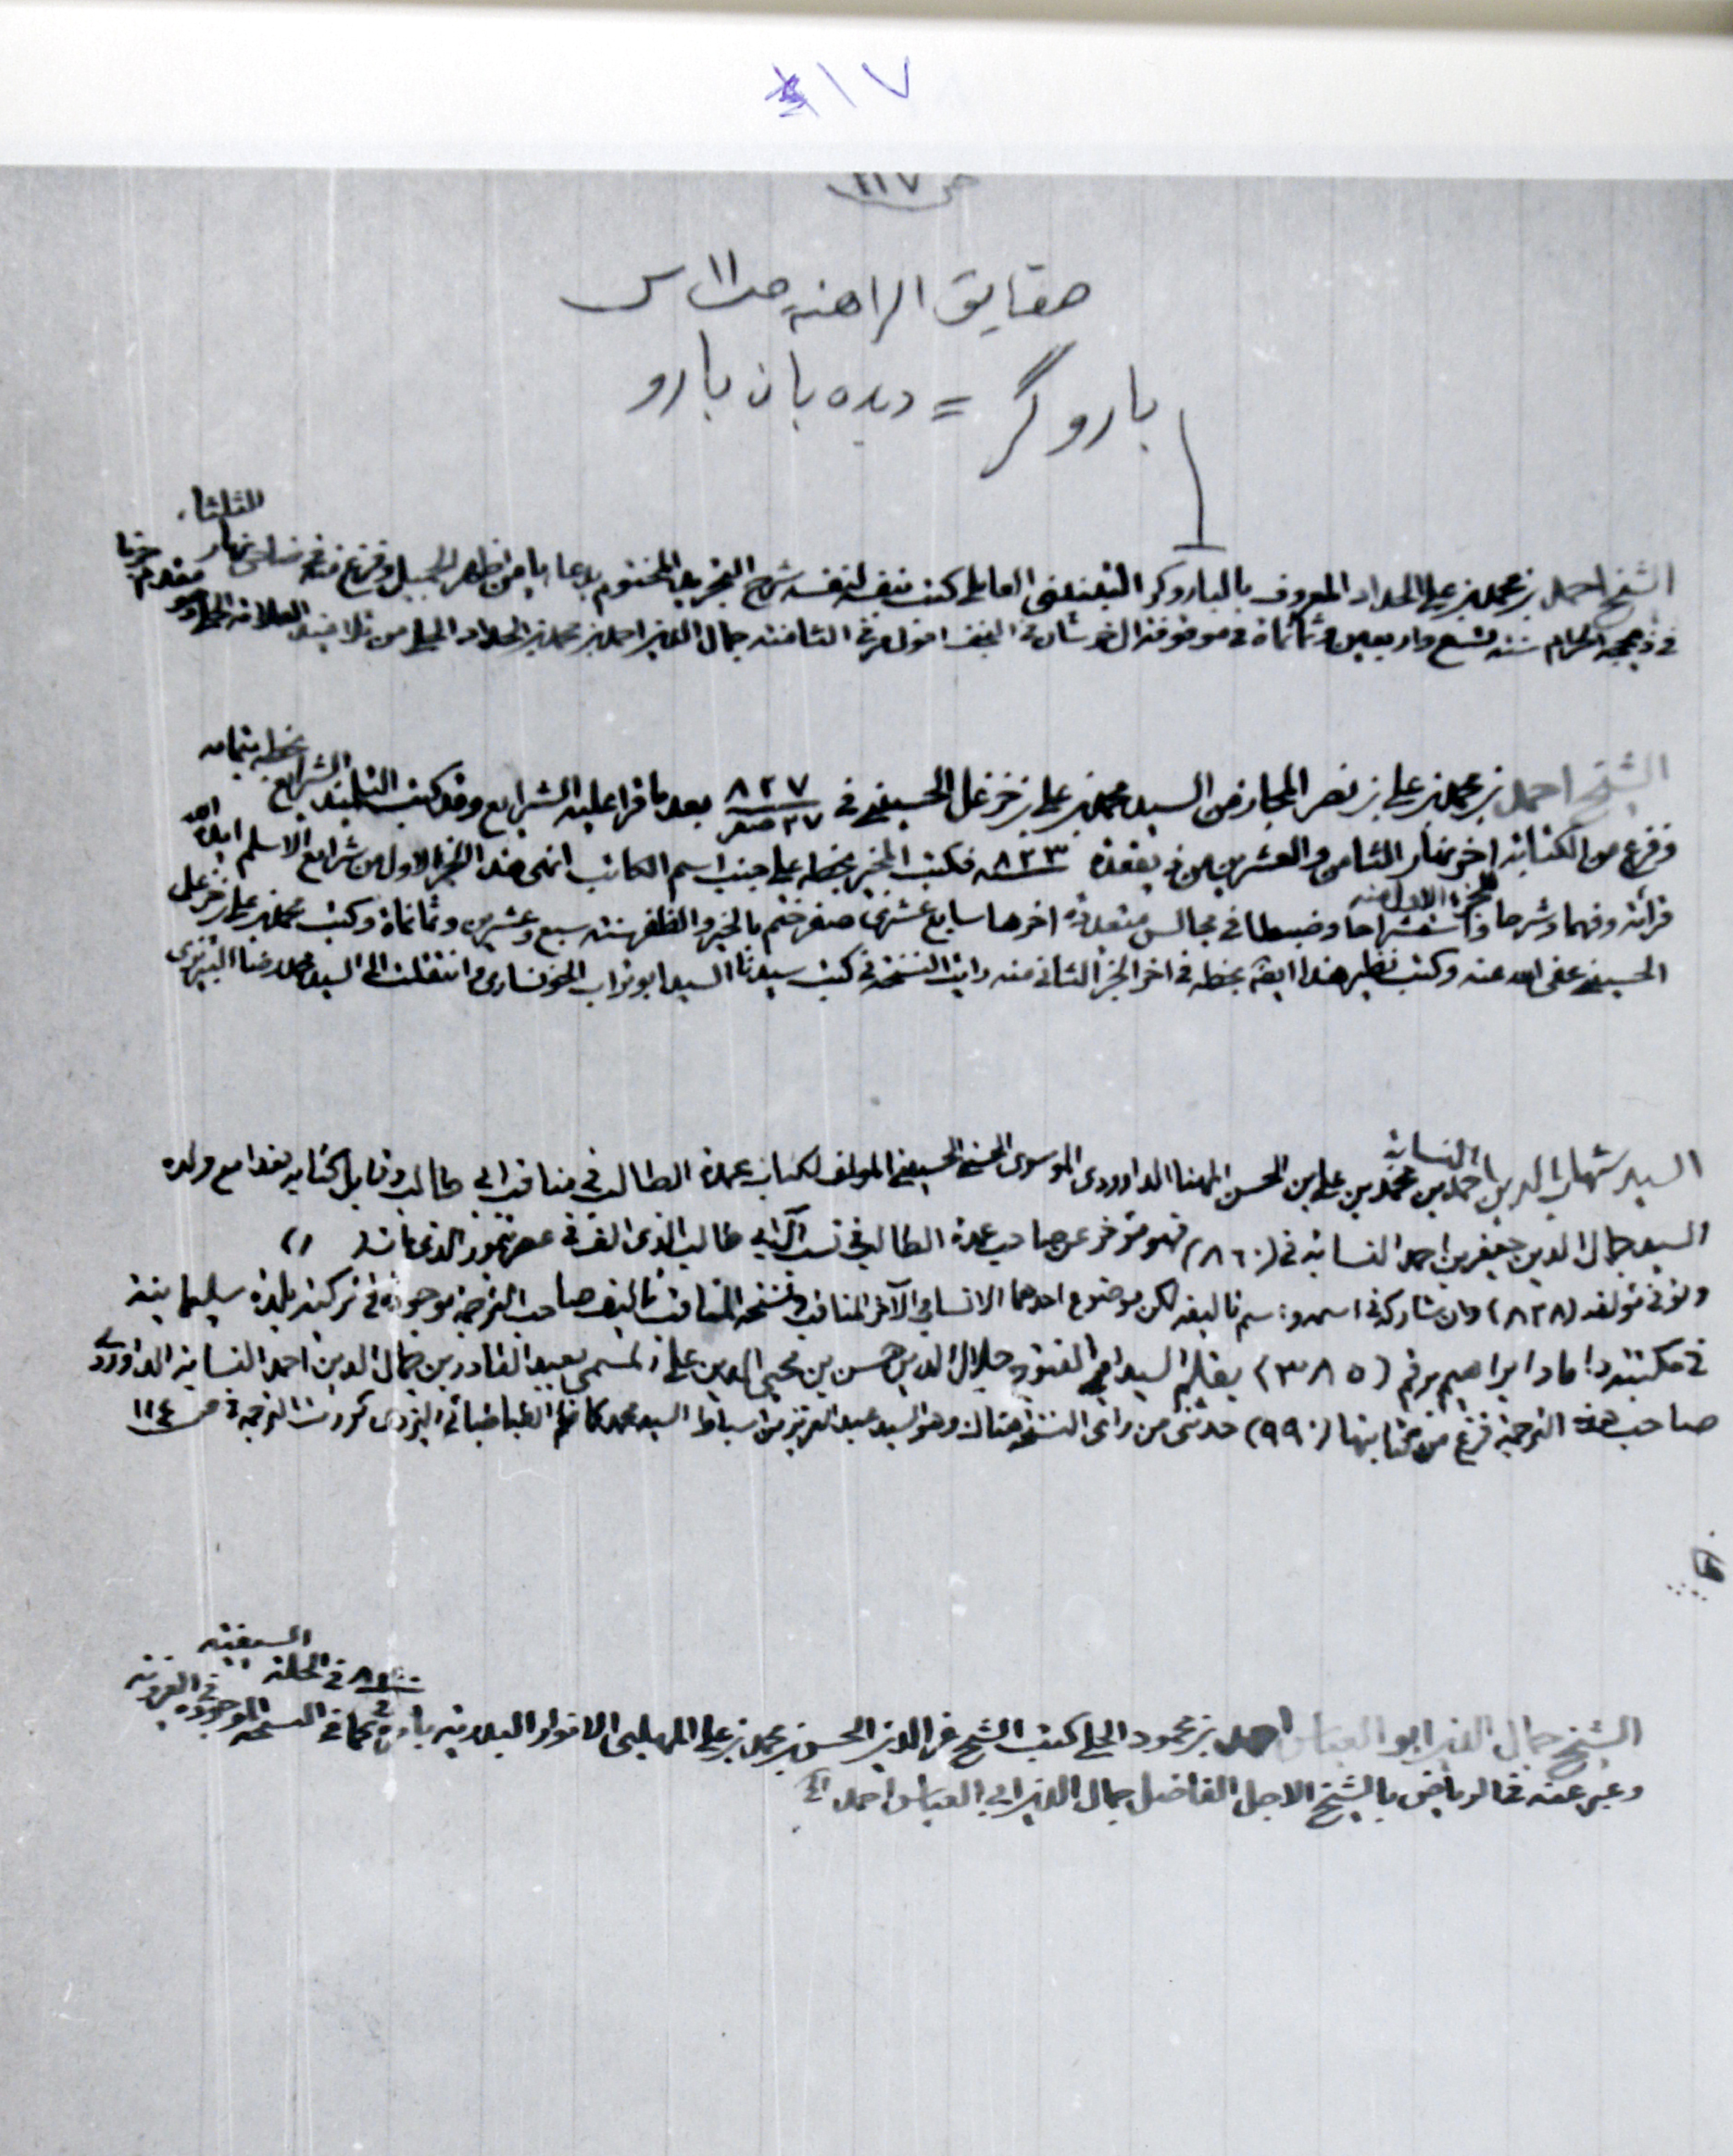 ١٧
ص ١١٧
حقايق الراهنه ص ١١ س
باروگر = ديده بان بارو
للثلثا
الشيخ احمد بن محمد بن علي الحداد المعروف بالباروكر العاملي كتب بنفسه لنفسه شرح التجريد المختوم بدعا يا من اظهر الجميل وفرغ منه في نهار
في ذيحجه الحرام سنة تسع واربعين وثمانمائة في النجف اقول مر في الثامنة جمال الدين احمد بن محمد بن الحداد الحلي من تلاميذ العلامة الحلي وهو مقدم
بخطه بتمامه
الشيخ احمد بن محمد بن علي بن نصر المجاز من السيد محمد بن علي بن خزعل الحسيني في ٢٧ صفر ٨٢٧ بعد ما قرا عليه الشرايع وقد كتب التلميذ الشرايع
وفرغ من الكتابة اخر نهار الثامن والعشرين من ذيقعدة ٨٢٣ فكتب المجيز بخطه على جنب اسم الكاتب انهى هذا الجزء الاول من شرايع الاسلام ايده الله
الجزء الاول منه
قرائة وفهما وشرحا واستشراحا وضبطا في مجالس متعددة اخرها سابع عشرى صفر ختم بالخير والظفر سنة سبع وعشرين وثمانمائة وكتب محمد بن علي بن خزعل
الحسيني عفى الله عنه وكتب نظير هذا ايضا بخطه في اخر الجزء الثاني منه رايت النسخة في كتب سيدنا السيد ابو تراب الخونسارى وانتقلت الى السيد محمد رضا التبريزى
النسابة
السيد شهاب الدين احمد بن محمد بن علي بن الحسن المهنا الداوودى الموسوى الحسني الحسيني المولف لكتاب عمدة الطالب في مناقب ابي طالب وقابل كتابه هذا مع ولده
السيد جمال الدين جعفر بن احمد النسابة في (٨٦٠) فهو مؤخر عن صاحب عمدة الطالب في نسب آل ابي طالب الذي الفه في عصر تيمور الذى مات ( )
وتوفي مؤلفه (٨٢٨) وان شاركه في اسمه واسم تاليفه لكن موضوع احدهما الانساب والآخر المناقب ونسخة المناقب تاليف صاحب الترجمة موجودة في تركيه بلدة سليمانية
في مكتبة داماد ابراهيم برقم (٣٠٨٥) بقلم السيد ابي الفتوح جلال الدين حسن بن محيي الدين علي المسمى بعبد القادر بن جمال الدين احمد النسابة الداوودي
صاحب هذه الترجمة فرغ من كتابتها (٩٩٠) حدثنى من راى النسخة هناك وهو السيد عبد العزيز من اسباط السيد محمد كاظم الطباطبائي اليزدى كررت الترجمة في ص ١١٤
السيفية
في الحلة
في الغروية
الشيخ جمال الدين ابو العباس احمد بن محمود الحلي كتب الشيخ عز الدين الحسن بن محمد بن علي المهلبي الانوار البدرية بامره كما في النسخة الموجوده
وعبر عنه في الرياض بالشيخ الاجل الفاضل جمال الدين ابي العباس احمد الخ